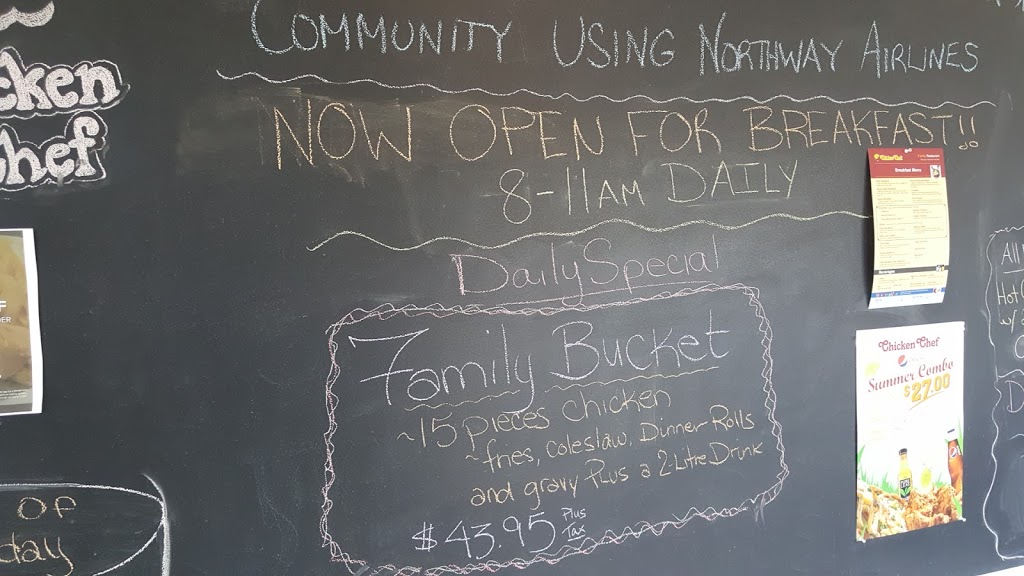 Community Using Northway Airlines
cken
hef
Now Open For Breakfast!!
8-11am Daily
Daily Special
Family Bucket
~15 pieces chicken
~fries, coleslaw, Dinner Rolls
and gravy Plus a 2 Litre Drink
$43.95 Plus Tax
Breakfast Menu
Chicken Chef
pepsi
Summer Combo
$27.00
All
Hot
Of
day